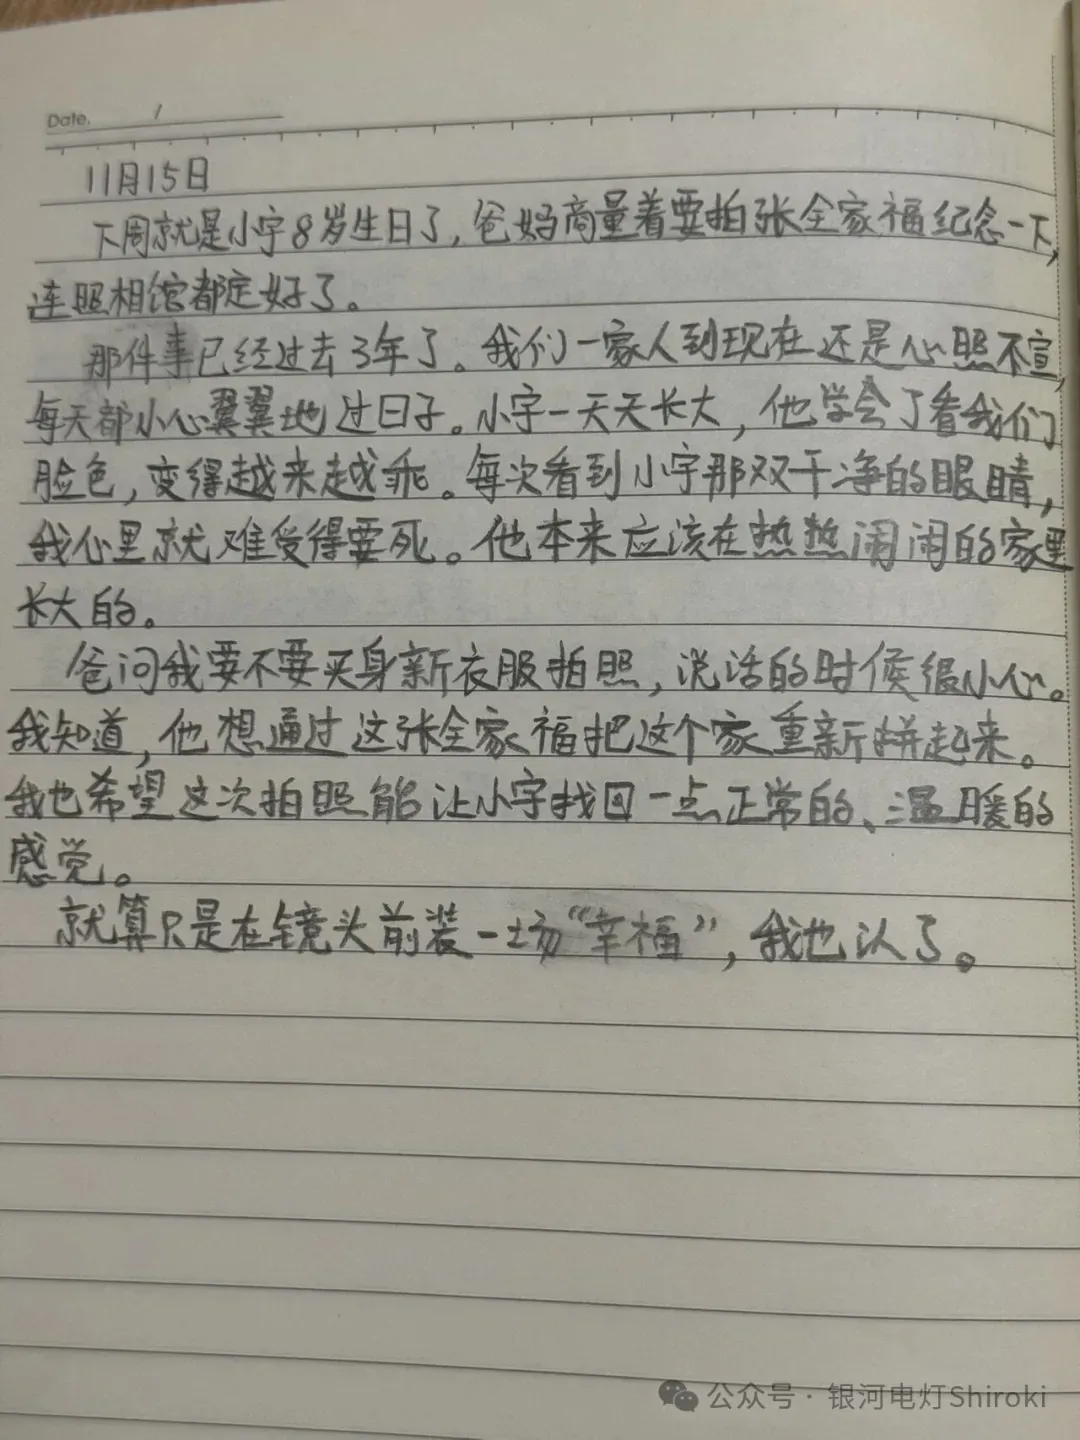 Date.
11月15日
下周就是小宇8岁生日了，爸妈商量着要拍张全家福纪念一下，
连照相馆都定好了。
那件事已经过去3年了。我们一家人到现在还是心照不宣，
每天都小心翼翼地过日子。小宇一天天长大，他学会了看我们
脸色，变得越来越乖。每次看到小宇那双干净的眼睛，
我心里就难受得要死。他本来应该在热热闹闹的家里
长大的。
爸问我要不要买身新衣服拍照，说话的时候很小心。
我知道，他想通过这张全家福把这个家重新拼起来。
我也希望这次拍照能让小宇找回一点正常的、温暖的
感觉。
就算只是在镜头前装一场“幸福”，我也认了。
公众号·银河电灯Shiroki